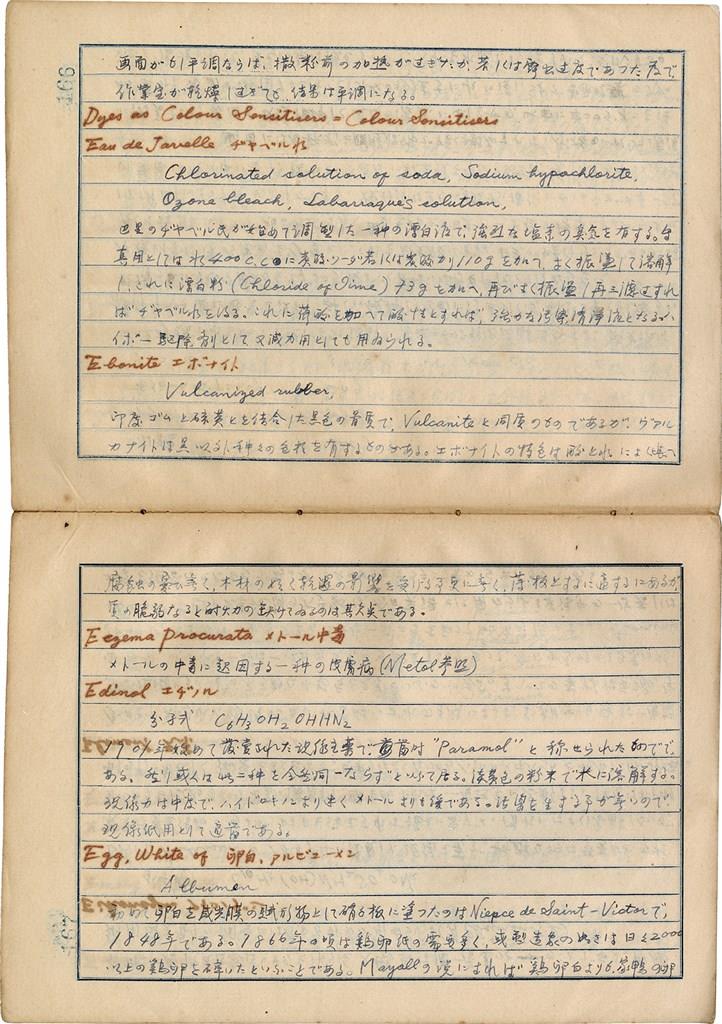 166
画面が6!平調ならば、撒粉前の加熱が過ぎたか、若くは露出過度であつた度で、
作業室が乾燥し過ぎても、結果は平調になる。
Dyes as Colour Sensitisers = Colour Sensitisers
Eau de Javelle ヂャベル水
Chlorinated solution of soda, Sodium hypochlorite,
Ozone bleach, Labarraque's solution,
巴里のヂャベル氏が始めて調製した一種の漂白液で、強烈な塩素の臭気を有する。
真用としては水400c.c.に炭酸ソーダ若くは炭酸カリ110gを加へ、よく振盪して溶解
し、これに漂白粉(Chloride of lime) 73gを加へ、再びよく振盪し再三濾過すれ
ばヂャベル水を得る。これに蓚酸を加へて酸性とすれば、強力な汚染清浄液となる。ハ
イポー駆除剤として又減力用としても用ゐられる。
Ebonite エボナイト
Vulcanized rubber,
印度ゴムと硫黄とを結合した黒色の骨質で、Vulcaniteと同質のものであるが、ヴァル
カナイトは黒以外種々の色相を有するものがある。エボナイトの特色は酸とれ によく堪へ
腐蝕の憂が無く、木材の如く乾湿の影響を受ける事更に無く、薄板とするに適するにあるが、
質の脆弱なると耐火力の欠けてゐるのは其欠点である。
Eczema procurata メトール中毒
メトールの中毒に起因する一種の皮膚病(Metol参照)
Edinol エヂノル
分子式 C6H3OH2OHHN2
1901年始めて発売された現像主薬で、当時"Paramol"と称せられたものでで
ある。或は此二種を全然同一ならずといつて居る。淡黄色の粉末で水に溶解する。
現像力は中度で、ハイドロキノンより速くメトールよりも緩である。汚染を生ずる事が無いので、
現像紙用として適当である。
Egg, White of 卵白、アルビューメン
Albumen
初めて卵白を感光膜の賦形物として硝子板に塗つたのはNiepce de Saint-Victorで、
1848年である。1866年の頃は鶏卵紙の需要多く、或製造家の如きは日に2000
以上の鶏卵を砕いたといふことである。Mayallの説によれば鶏卵白よりも家鴨の卵
167